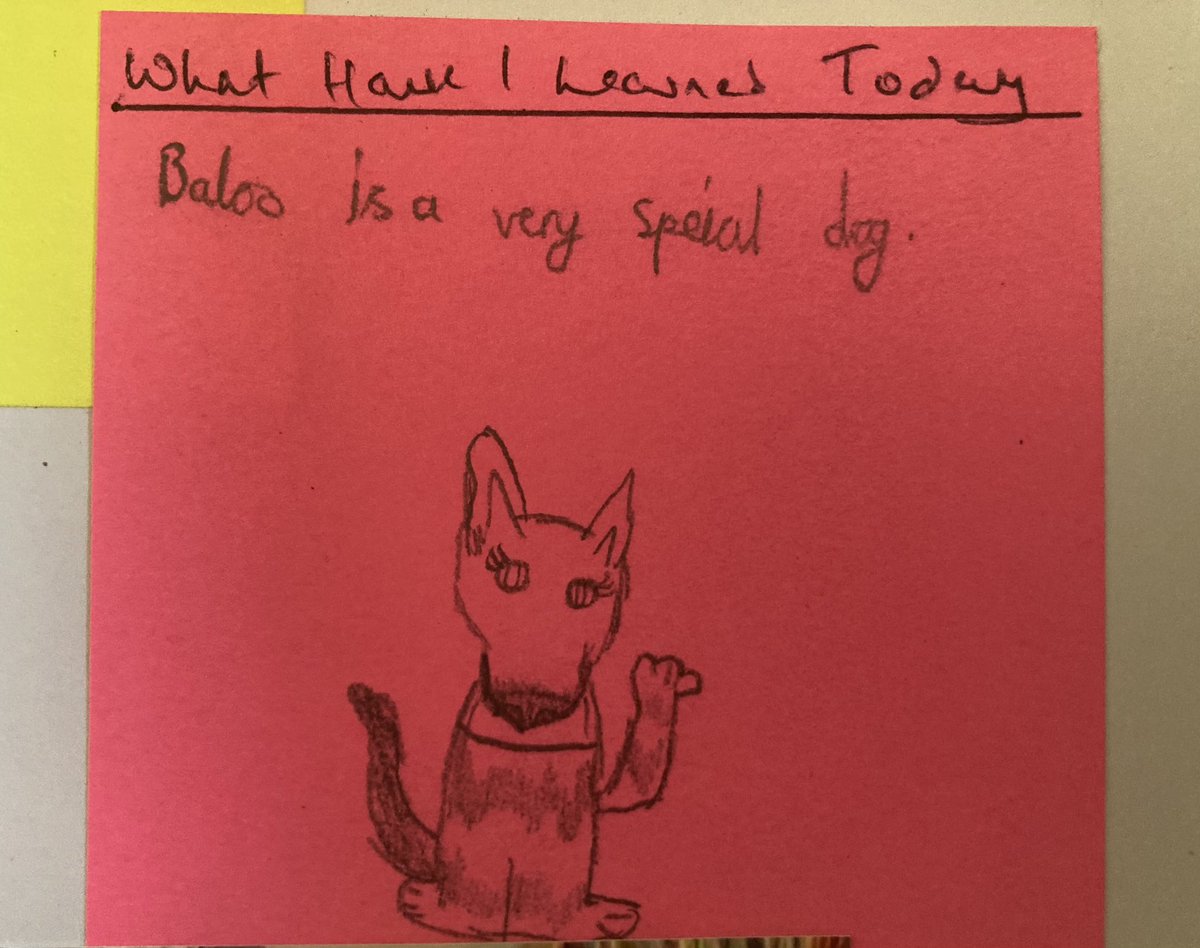 What Have I Learned Today
Baloo is a very speial dog.